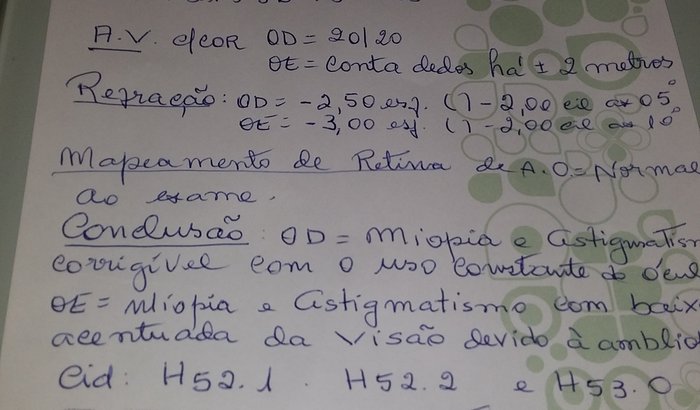 A.V. c/cor OD = 20/20
OE = Conta dedos há ± 2 metros
Refração: OD = -2,50 esf. () -2,00 cil ax 05°
OE = -3,00 esf. () -2,00 cil ax 10°
Mapeamento de Retina de A.O. = Normal
ao exame.
Conclusão: OD = Miopia e Astigmatism
corrigível com o uso constante do ócul
OE = Miopia e Astigmatismo com baix
acentuada da visão devido à amblio
Cid: H52.1 . H52.2 e H53.0